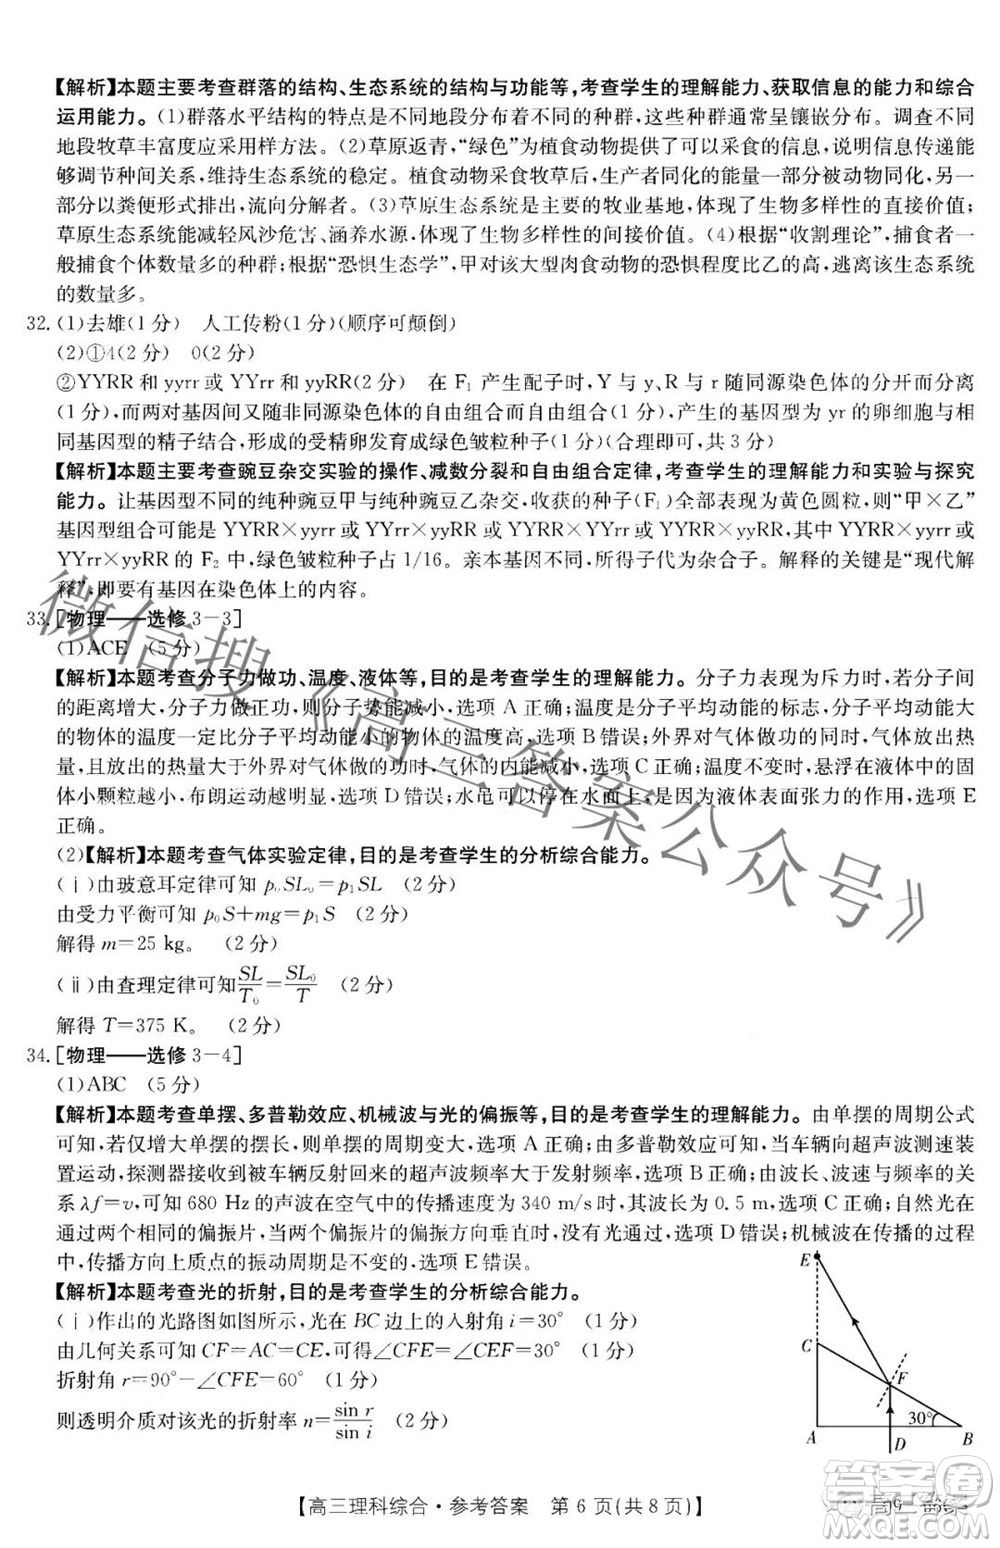 【解析】本题主要考查群落的结构、生态系统的结构与功能等，考查学生的理解能力、获取信息的能力和综合
运用能力。(1)群落水平结构的特点是不同地段分布着不同的种群，且该种群通常呈镶嵌分布。调查不同
地段牧草丰富度应采用取样器取样法。(2)草原返青，“绿色”为植食动物提供了可以采食的信息，说明信息
能调节生物的种间关系，维持生态系统的稳定。植食动物采食牧草后，生产者同化的能量一部分被动物同化，一部
分以粪便形式排出，流向分解者。(3)草原生态系统是主要的牧业基地，体现了生物多样性的直接价值；
草原生态系统能减轻风沙危害、涵养水源，体现了生物多样性的间接价值。(4)根据“收割理论”，捕食者一
般捕食个体数量多的种群；根据“恐惧生态学”，甲对该大型肉食动物的恐惧程度比乙的高，逃离该生态系统
的数量多。
32. (1)去雄(1分)　人工传粉(1分)(顺序可颠倒)
(2)①4(2分)　0(2分)
②YYRR和yyrr或YYrr和yyRR(2分)　在F₁产生配子时，Y与y、R与r随同源染色体的分开而分离
(1分)，而两对基因间又随非同源染色体的自由组合而自由组合(1分)，产生的基因型为yr的卵细胞与相
同基因型的精子结合，形成的受精卵发育成绿色皱粒种子(1分)(合理即可，共3分)
【解析】本题主要考查豌豆杂交实验的操作、减数分裂和自由组合定律，考查学生的理解能力和实验与探究
能力。让基因型不同的纯种豌豆甲与纯种豌豆乙杂交，收获的种子(F₁)全部表现为黄色圆粒，则“甲×乙”
基因型组合可能是YYRR×yyrr或YYrr×yyRR或YYRR×YYrr或YYRR×yyRR，其中YYRR×yyrr或
YYrr×yyRR的F₂中，绿色皱粒种子占1/16。亲本基因不同，所得子代为杂合子。解释的关键是“现代解
释”，即要有基因在染色体上的内容。
33. [物理——选修3－3]
(1)ACE　(5分)
【解析】本题考查分子力做功、温度、液体等，目的是考查学生的理解能力。分子力表现为斥力时，若分子间
的距离增大，分子力做正功，分子势能减小，选项A正确；温度是分子平均动能的标志，分子平均动能大
的物体的温度一定比分子平均动能小的物体的温度高，选项B错误；外界对气体做功的同时，气体放出热
量，且放出的热量大于外界对气体做的功时，气体的内能减小，选项C正确；悬浮在液体中的固
体小颗粒越小，布朗运动越明显，选项D错误；水黾可以停在水面上，是由于液体表面张力的作用，选项E
正确。
(2)【解析】本题考查气体实验定律，目的是考查学生的分析综合能力。
(ⅰ)由玻意耳定律可知p₀SL₀=p₁SL　(2分)
由受力平衡可知p₀S+mg=p₁S　(2分)
解得m=25 kg。　(2分)
(ⅱ)由查理定律可知SL/T₀=SL₀/T　(2分)
解得T=375 K。　(2分)
34. [物理——选修3－4]
(1)ABC　(5分)
【解析】本题考查单摆、多普勒效应、机械波与光的偏振等，目的是考查学生的理解能力。由单摆的周期公式
可知，若仅增大单摆的摆长，则单摆的周期变大，选项A正确；由多普勒效应可知，当车辆向超声波测速装
置运动，探测器接收到被车辆反射回来的超声波频率大于发射频率，选项B正确；由波长、波速与频率的关
系λf=v，可知680 Hz的声波在空气中的传播速度为340 m/s时，其波长为0.5 m，选项C正确；自然光在
通过两个相同的偏振片，当两个偏振片的偏振方向垂直时，没有光通过，选项D错误；机械波在传播的过程
中，传播方向上质点的振动周期是不变的，选项E错误。
【解析】本题考查光的折射，目的是考查学生的分析综合能力。
(ⅰ)作出的光路图如图所示，光在BC边上的入射角i=30°　(1分)
由几何关系可知CF=AC=CE，可得∠CFE=∠CEF=30°　(1分)
折射角r=90°-∠CFE=60°　(1分)
则透明介质对该光的折射率n=sin r/sin i　(2分)
E
C
F
30°
A
D
B
【高三理科综合·参考答案　第6页(共8页)】
微信搜《高三答案公众号》